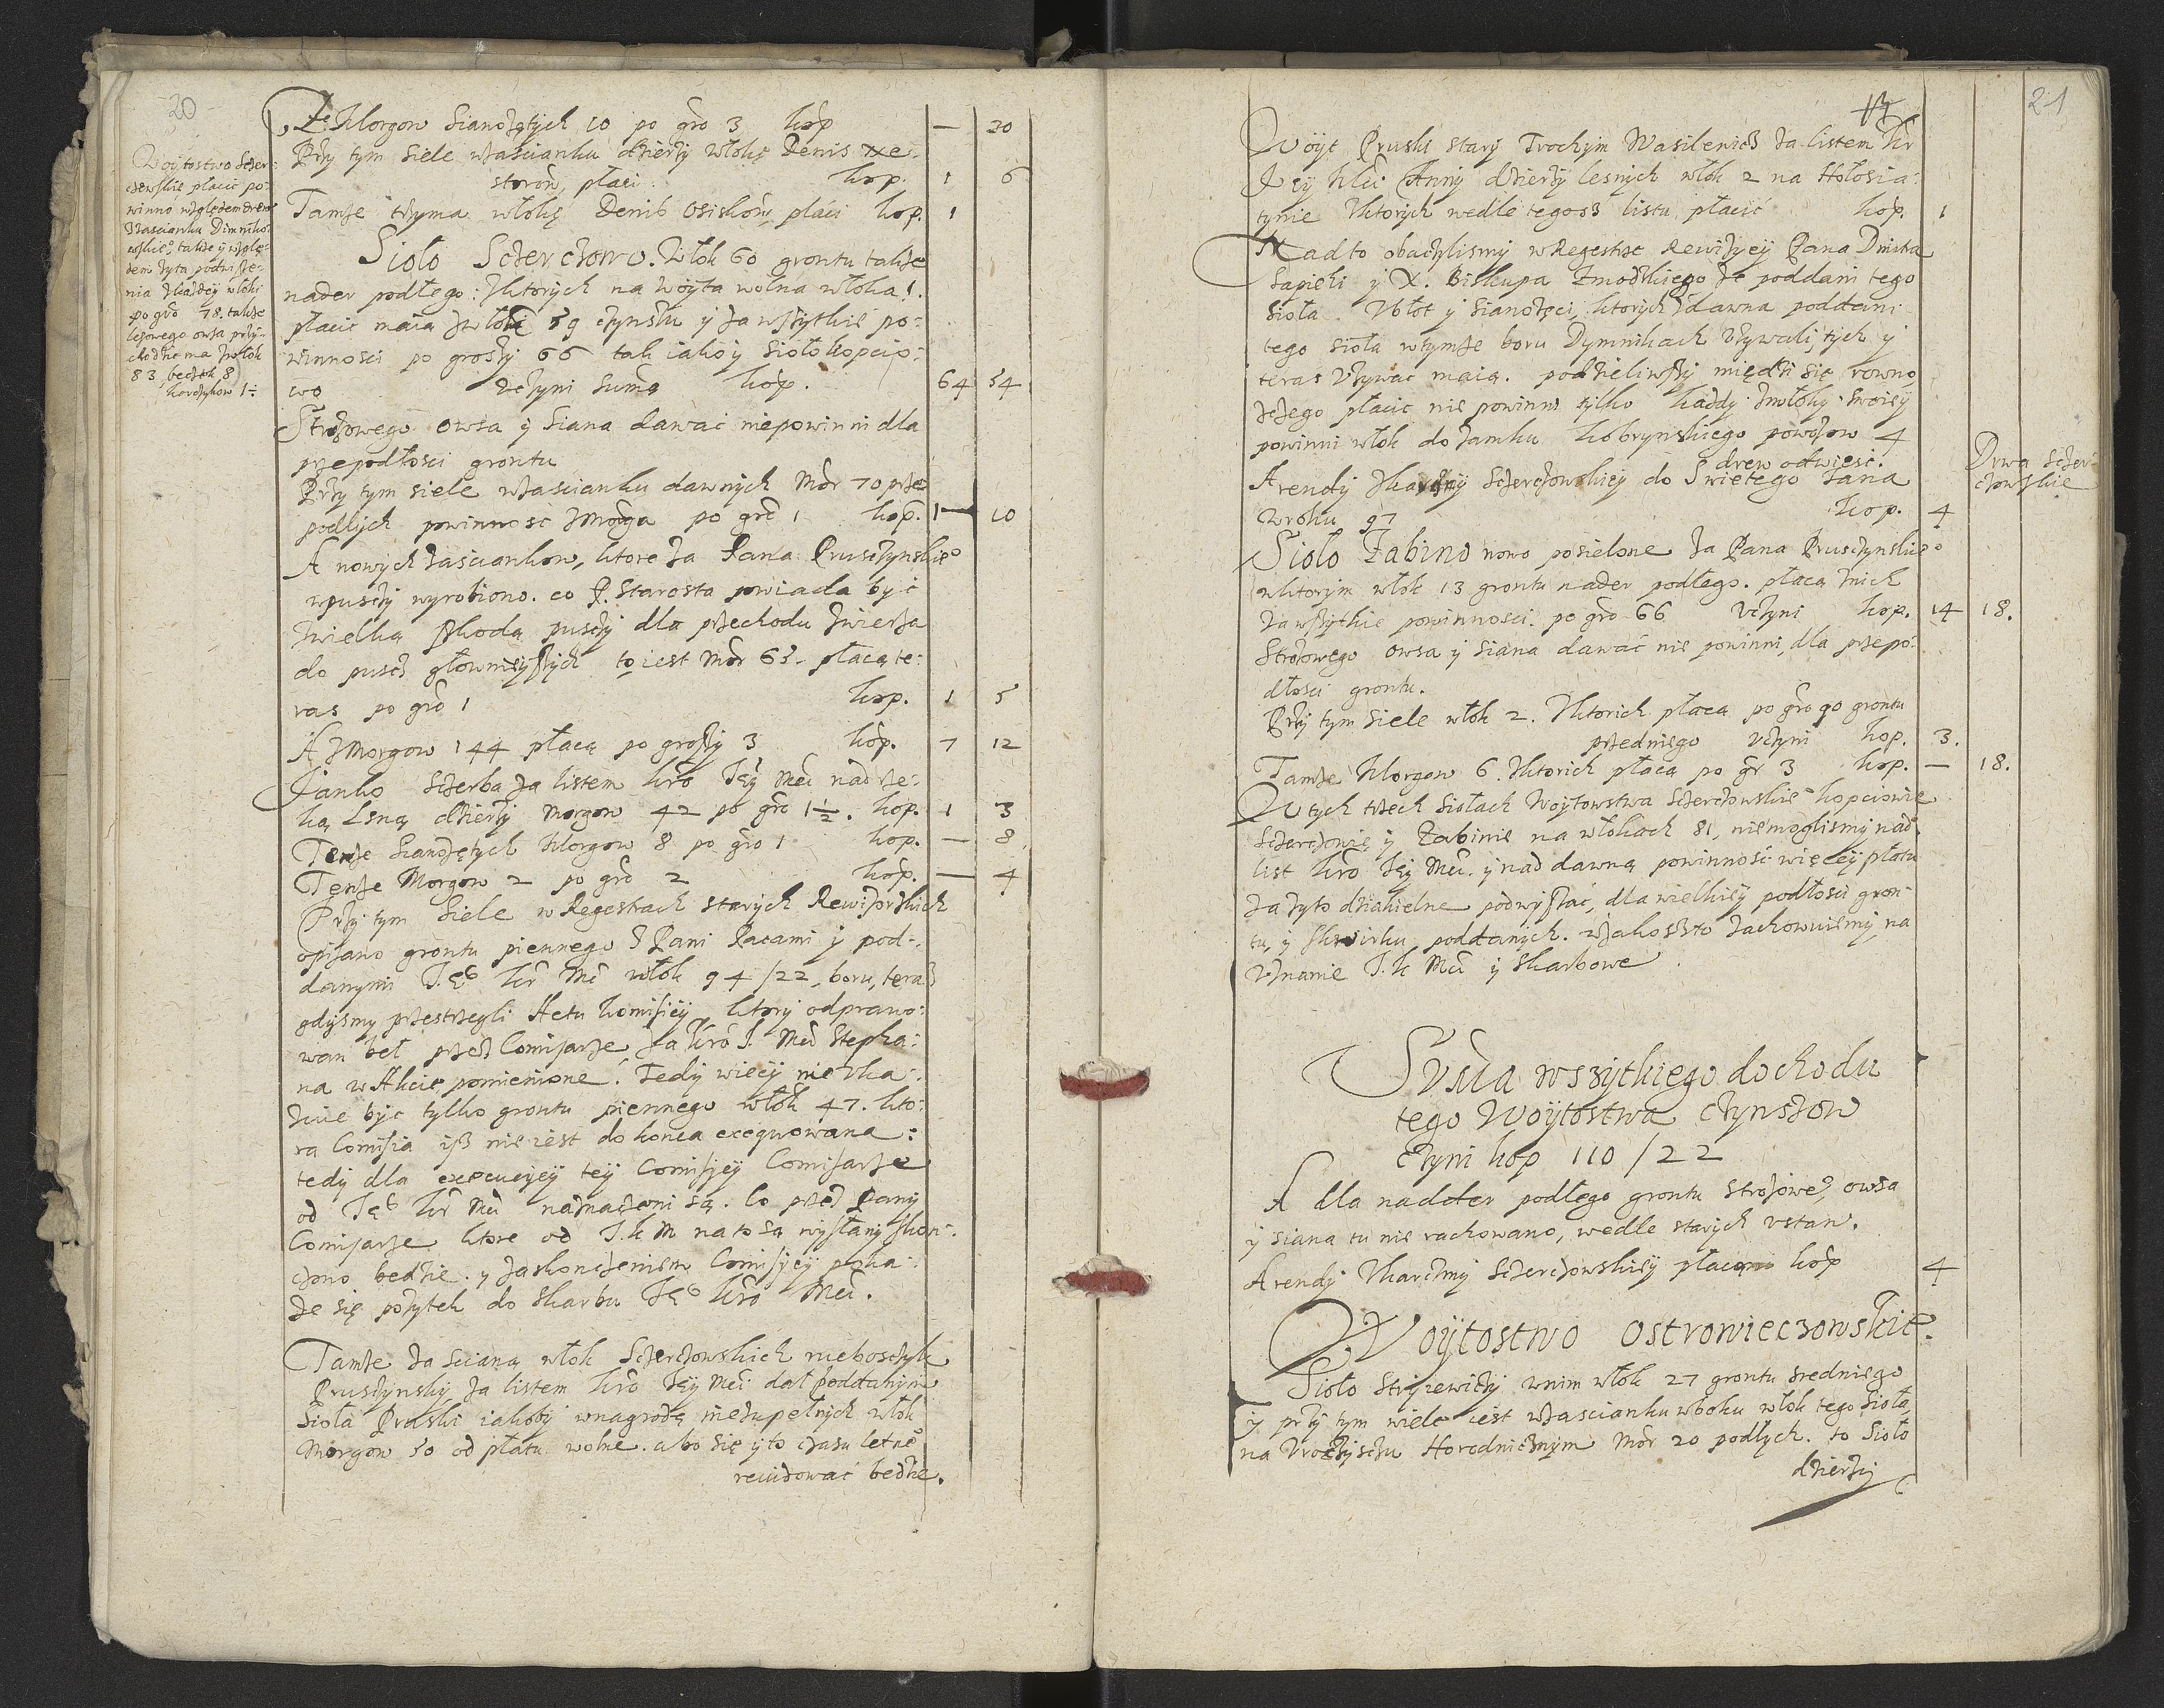 20
Woÿtostwo Sczer-
czewskie płacić po-
winno względem drew
Zascianku Dimniko-
wskie°, także ÿ wzglę-
dem żyta podwisze-
nia z każdeÿ włoki
po grõ 78. także
lezowego owsa prżÿ-
chodzić ma z włok
83, beczek 8
korczÿkow 1
Ze Morgow Sianożętÿch 10 po grõ 3 kop — 30
Prżÿ tym Siele w zascianku dzierżÿ włokę Denis Ne-
storow, płaci kop. 1 6
Tamże trżyma włokę Denis Osiskow, płaci kop. 1
Sioło Sczerczowo. Włok 60 grontu także
nader podłego: Z ktorÿch na Woÿta wolna włoka 1.
płacić maią z włok 59 czÿnszu ÿ za wszÿtkie po-
winnosci po groszÿ 66 tak iako ÿ Sioło Kopcio-
wo vczÿni Sumą kop. 64 54
Strożowego owsa ÿ Siana dawać niepowinni dla
przepodłosci grontu
Prżÿ tym siele w zascianku dawnÿch Mor 70 prze
podłÿch powinność z Morga po grõ 1 kop. 1 10
A nowÿch zasciankow, ktore za Pana Pruszczÿnskie°
w puszczÿ wyrobiono. co P. Starosta powiada bÿć
z wielką szkodą puszczÿ dla przechodu zwierza
do puscz głownieÿszÿch to iest Mor 65. płacą te-
ras po grõ 1 kop. 1 5
A z Morgow 144 płacą po groszÿ 3 kop. 7 12
Janko Sczerba za listem Kro Jeÿ Mci nad rze-
ką Lsną dzierżÿ morgow 42 po grõ 1½. kop. 1 3
Tenże Sianożętÿch Morgow 8 po grõ 1 kop. — 8
Tenże Morgow 2 po grõ 2 kop. — 4
Prżÿ tym Siele w Regestrach starÿch Rewizorskich
opisano grontu piennego z Pani Pacami ÿ pod-
danymi J. Kr Mci włok 94/22, boru, teras
gdÿsmy przestrzegli Aktu Komisiÿ, ktorÿ odprawo-
wan beł przez Comisarze za Kro J. Mci Stepha-
na w Akcie pomienione. Tedÿ wieceÿ nie vka-
zuie bÿć tylko grontu piennego włok 47. kto-
ra Comisia isz nie iest do konca exeqwowana:
tedÿ dla execucÿeÿ teÿ Comisÿeÿ Comisarze
od Je° Kr Mci naznaczeni są. Co przez Panÿ
Comisarze ktore od J. K M na to są wysłanÿ skon-
czono bedzie. y za skonczeniem Comisÿeÿ poka-
że się pożÿtek do Skarbu Je° Kro Mci.
Tamże za scianą włok Sczerczowskich nieboszczÿk
Pruszczÿnskÿ za listem Kro Jeÿ Mci dał poddanÿm
Sioła Pruski iakobÿ w nagrodę niezupełnÿch włok
Morgow 50 od płatu wolne. abo się ÿ to czasu letne°
rewidować bedzie.
21
Woÿt Pruski starÿ Trochÿm Wasilewicz za listem Kr
Jeÿ Mci Annÿ dzierżÿ lesnÿch włok 2 na Hołosia-
tynie z ktorÿch wedle tegosz listu płacić kop. 1
Nad to obaczÿlismÿ w Regestrze Rewizÿeÿ Pana Dmitra
Sapiehi ÿ X. Biskupa Zmodzkiego że poddani tego
Sioła. Vbłot ÿ Sianożęci, ktorÿch z dawna poddani
tego sioła w tymże boru Dymnikach Vżÿwali, tÿch ÿ
teras Vżÿwać maią. podzieliwszÿ międzi się rowno,
z czego płacić nie powinni tÿlko każdÿ z włoky swoieÿ
powinni włok do Zamku Kobrynskiego powozow 4
drew odwiesć.
Drwa Sczer-
czowskie
Arendÿ z karczmÿ Sczerczowskieÿ do Swiętego Jana
w roku 97 kop. 4
Sioło Żabino nowo posielone za Pana Pruszczÿnskie°
w ktorÿm włok 13 grontu nader podłego. płacą z nich
za wszÿtkie powinnosci. po grõ 66 Vczÿni kop. 14 18.
Strożowego owsa ÿ Siana dawać nie powinni, dla przepo-
dłosci grontu.
Prżÿ tym Siele włok 2. Z ktorich płacą po grõ 90 grontu
przedniego vczÿni kop. 3.
Tamże Morgow 6. Z ktorich płacą po gr 3 kop. — 18.
W tych trzech Siołach Woÿtowstwa Sczerczowskie° Kopciowie
Sczerczowie ÿ Żabinie na włokach 81, nie moglismÿ nad
list Kro Jeÿ Mci. ÿ nad dawną powinność więceÿ płatu
za żÿto dziakielne podwÿszać, dla wielkieÿ podłosci gron-
tu, ÿ skwirku poddanÿch. wszakosz to zachowuiemÿ na
Vznanie J. K Mci ÿ Skarbowe
Suma wszÿtkiego dochodu
tego Woÿtostwa czÿnszow
czÿni kop 110/22
A dla nadder podłego grontu strożowe°, owsa
ÿ siana tu nie rachowano, wedle starÿch vstaw.
Arendÿ Z karczmÿ Sczerczowskieÿ płacą kop 4
Woÿtostwo Ostrowieczowskie.
Sioło Striżewiczÿ w nim włok 27 grontu sredniego
ÿ prżÿ tym siele iest w zascianku w boku włok tego Sioła,
na Vroczÿsczu Horodnicznÿm Mor 20 podłÿch. to Sioło
dzierżÿ